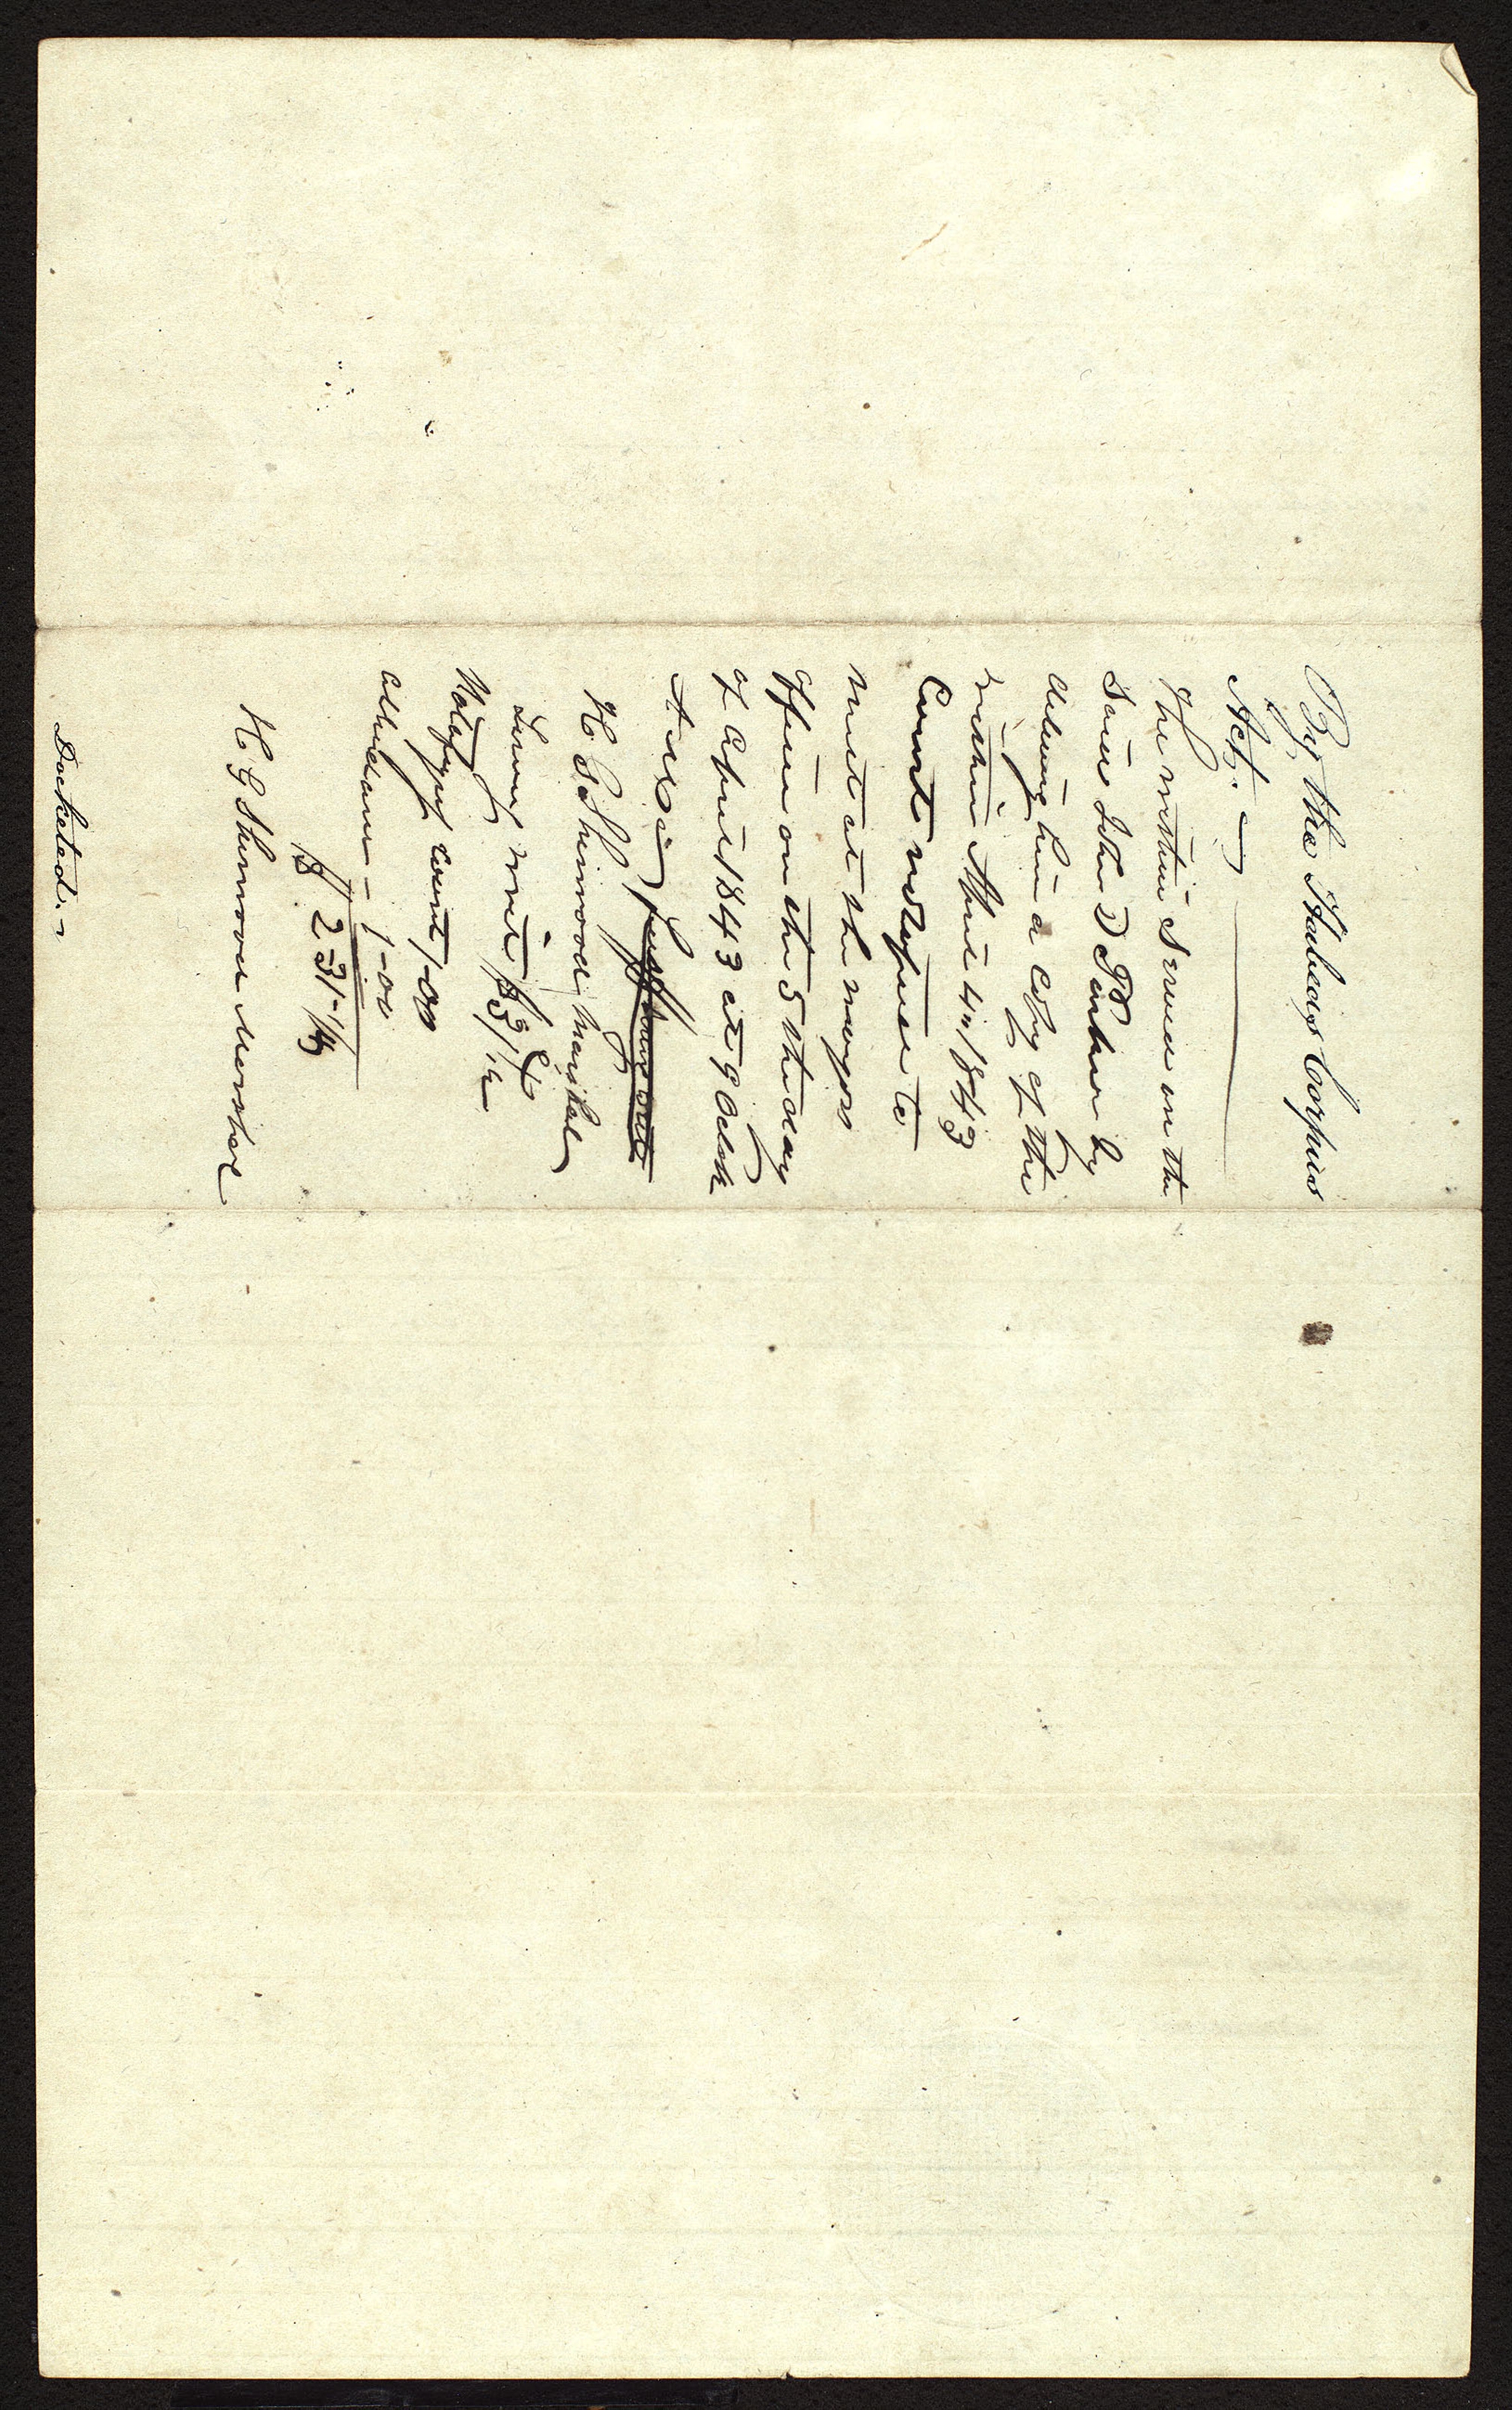 By the Habeas Corpus
Act.
The within Served on the
Said John D Parker by
delivering him a Copy of the
within April 4th 1843
Court notefied to
meet at the mayors
office on the 5 the day
of April 1843 at 9 Oclock
A M
H G Sherwood marshal
Serving writ $31¼
Notifying court 1-00
attendance - 1-00
$2-31-¼
H G Sherwood Marshal
Docketed.-